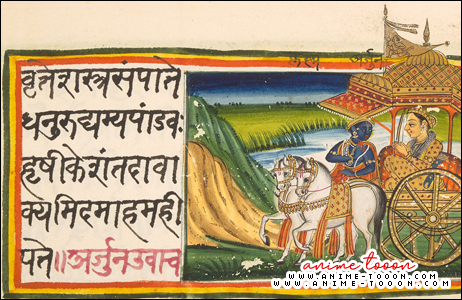 कृष्ण अर्जुन
वृत्तेशस्त्रसंपाते
धनुरुद्यम्यपांडवः
हृषीकेशंतदावा
क्यमिदमाहमही
पते॥अर्जुनउवाच
anime tooon
WWW.ANIME-TOOON.COM
WWW.ANIME-TOOON.COM